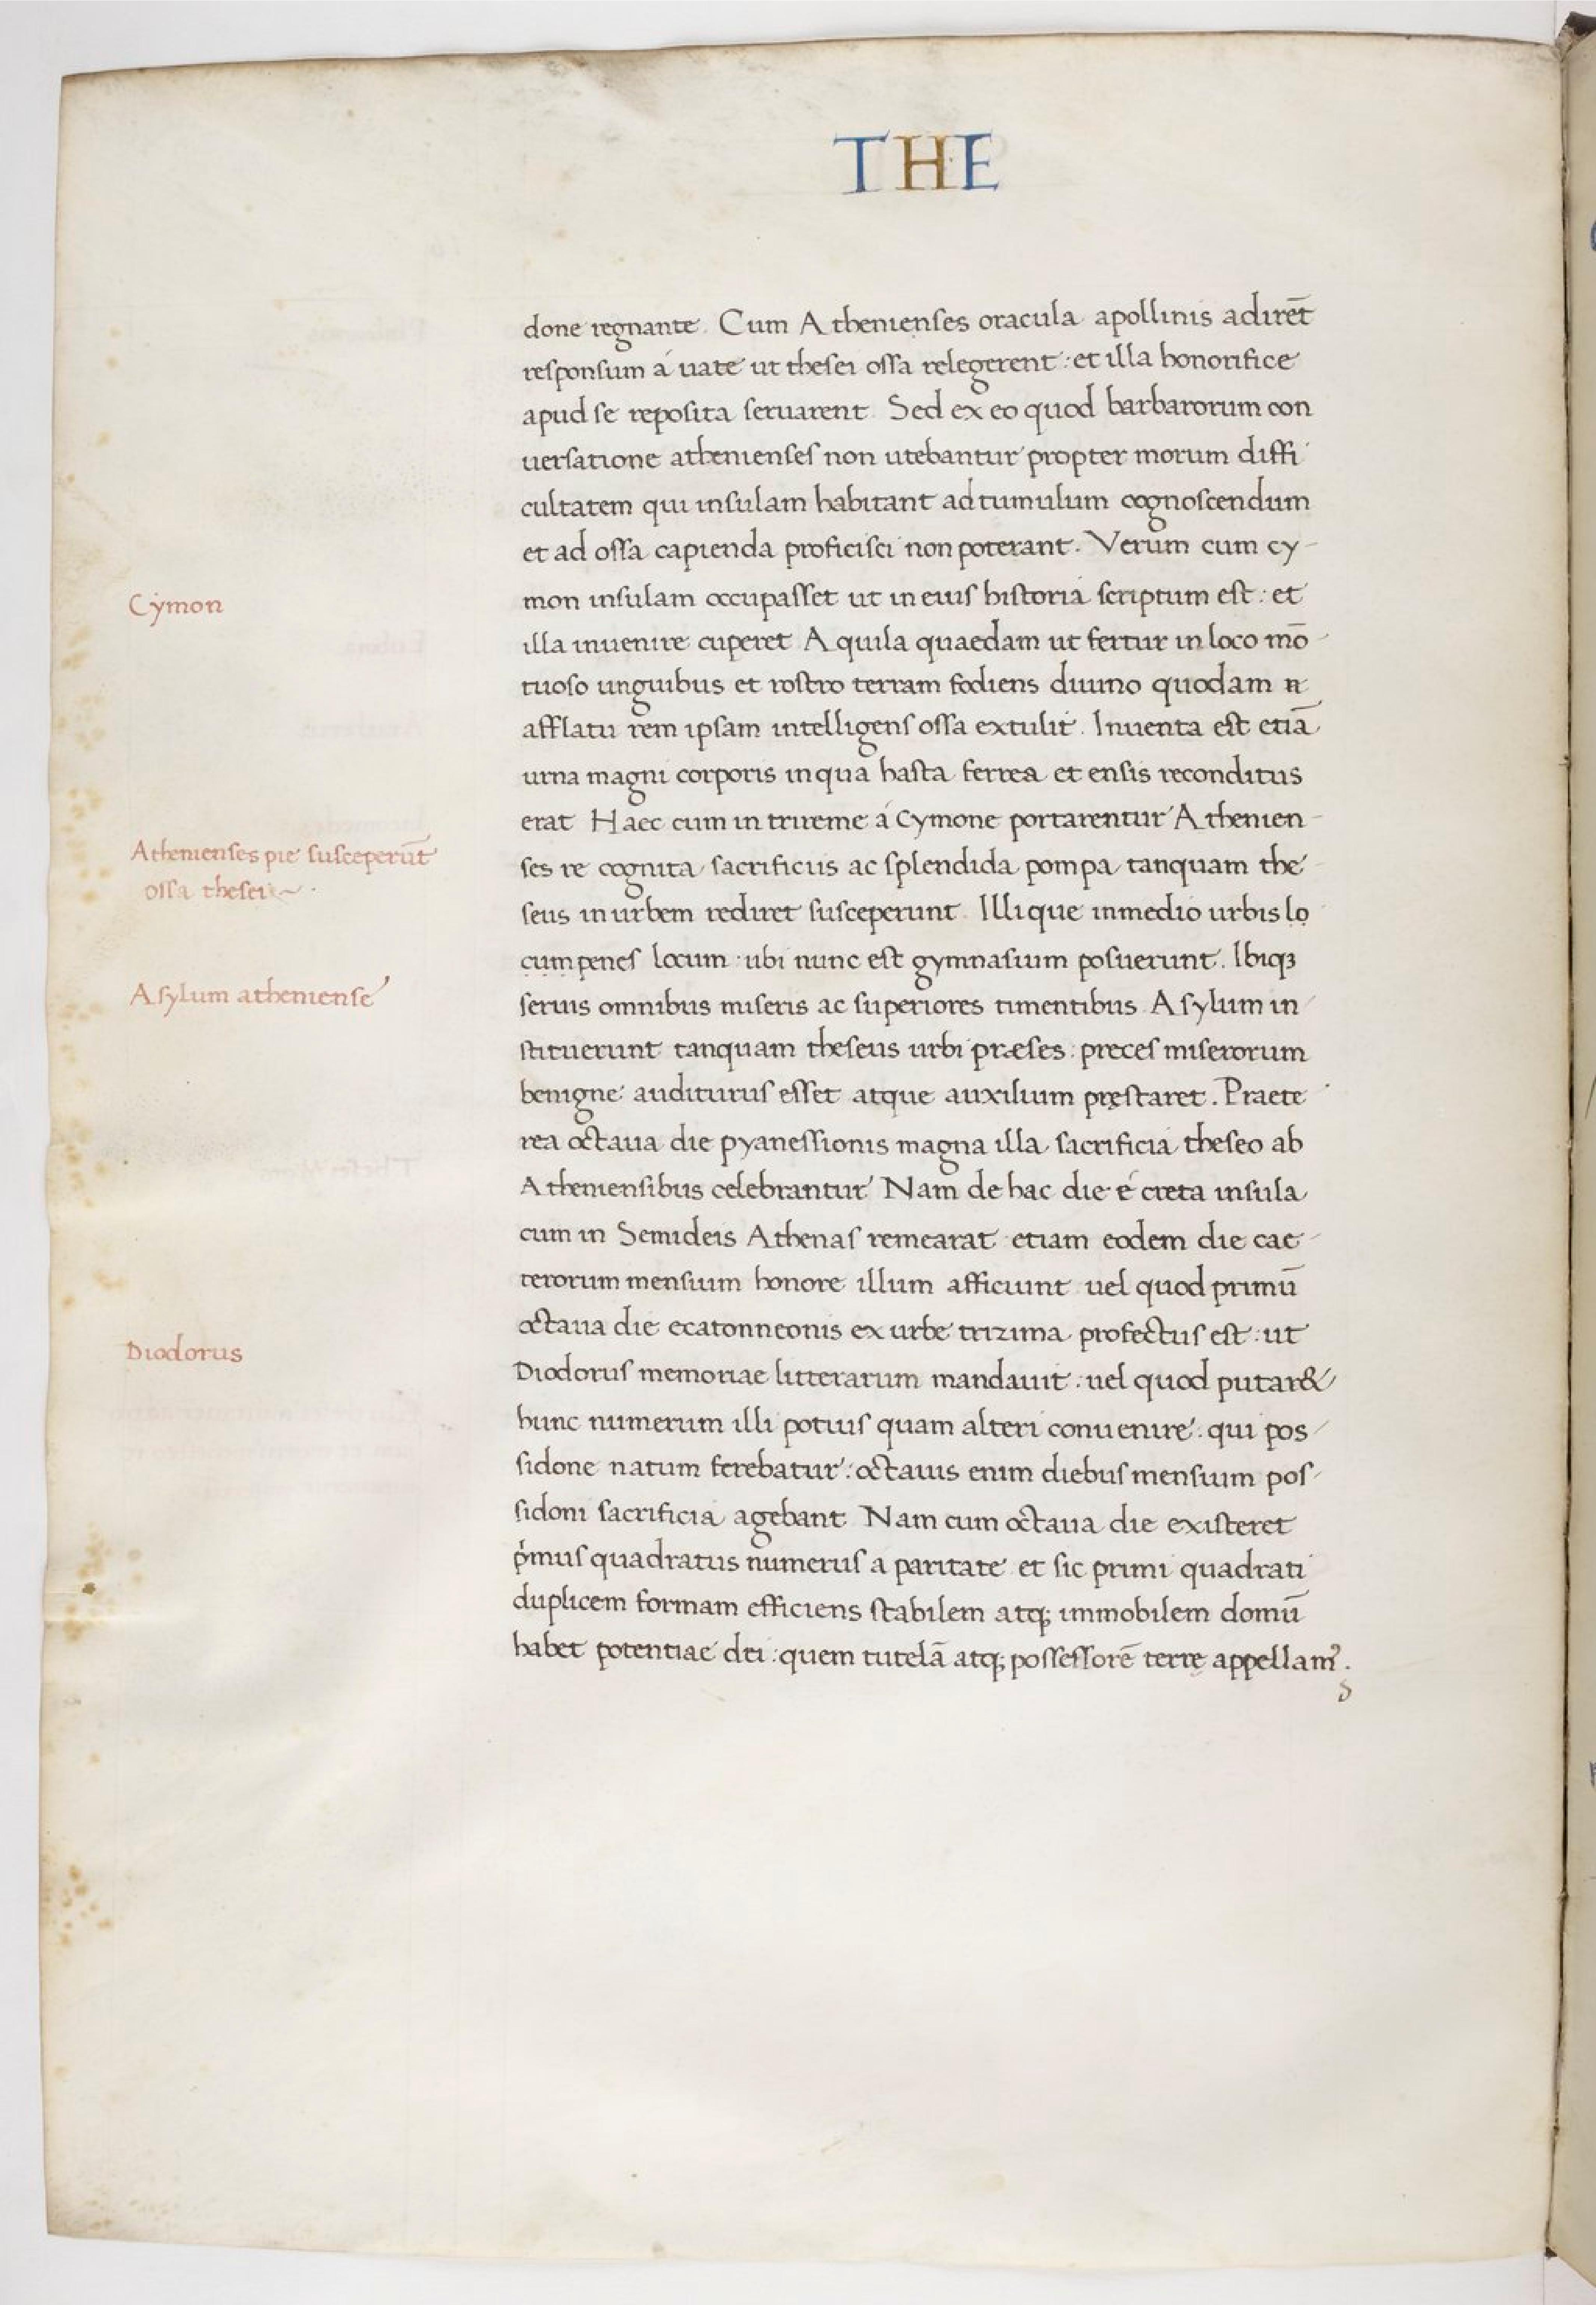 THE
done regnante. Cum Athenienses oracula apollinis adirēt
responsum á uate ut thesei ossa relegerent: et illa honorifice
apud se reposita seruarent. Sed ex eo quod barbarorum con
uersatione athenienses non utebantur propter morum diffi
cultatem qui insulam habitant ad tumulum cognoscendum
et ad ossa capienda proficisci non poterant. Verum cum cy-
Cymon
mon insulam occupasset ut in eius historia scriptum est: et
illa inuenire cuperet Aquila quaedam ut fertur in loco mō-
tuoso unguibus et rostro terram fodiens diuino quodam
afflatu rem ipsam intelligens ossa extulit. Inuenta est etiā
urna magni corporis in qua hasta ferrea et ensis reconditus
erat Haec cum in trireme á Cymone portarentur Athenien-
Athenienses pie susceperūt
ossa thesei ~ .
ses re cognita sacrificiis ac splendida pompa tanquam the-
seus in urbem rediret susceperunt. Illique in medio urbis lo
cum penes locum ubi nunc est gymnasium posuerunt. Ibiqꝫ
Asylum atheniense
seruis omnibus miseris ac superiores timentibus Asylum in
stituerunt tanquam theseus urbi præses: preces miserorum
benigne auditurus esset atque auxilium pręstaret. Praete
rea octaua die pyanessionis magna illa sacrificia theseo ab
Atheniensibus celebrantur Nam de hac die é creta insula
cum in Semideis Athenas remearat etiam eodem die cae-
terorum mensium honore illum afficiunt uel quod primū
octaua die ecatonneonis ex urbe trizima profectus est: ut
Diodorus
Diodorus memoriae litterarum mandauit: uel quod putar&
hunc numerum illi potius quam alteri conuenire: qui pos-
sidone natum ferebatur: octauis enim diebus mensium pos-
sidoni sacrificia agebant Nam cum octaua die existeret
pͥmus quadratus numerus a paritate et sic primi quadrati
duplicem formam efficiens stabilem atqꝫ immobilem domū
habet potentiae dei: quem tutelā atqꝫ possessorē terrę appellamꝰ.